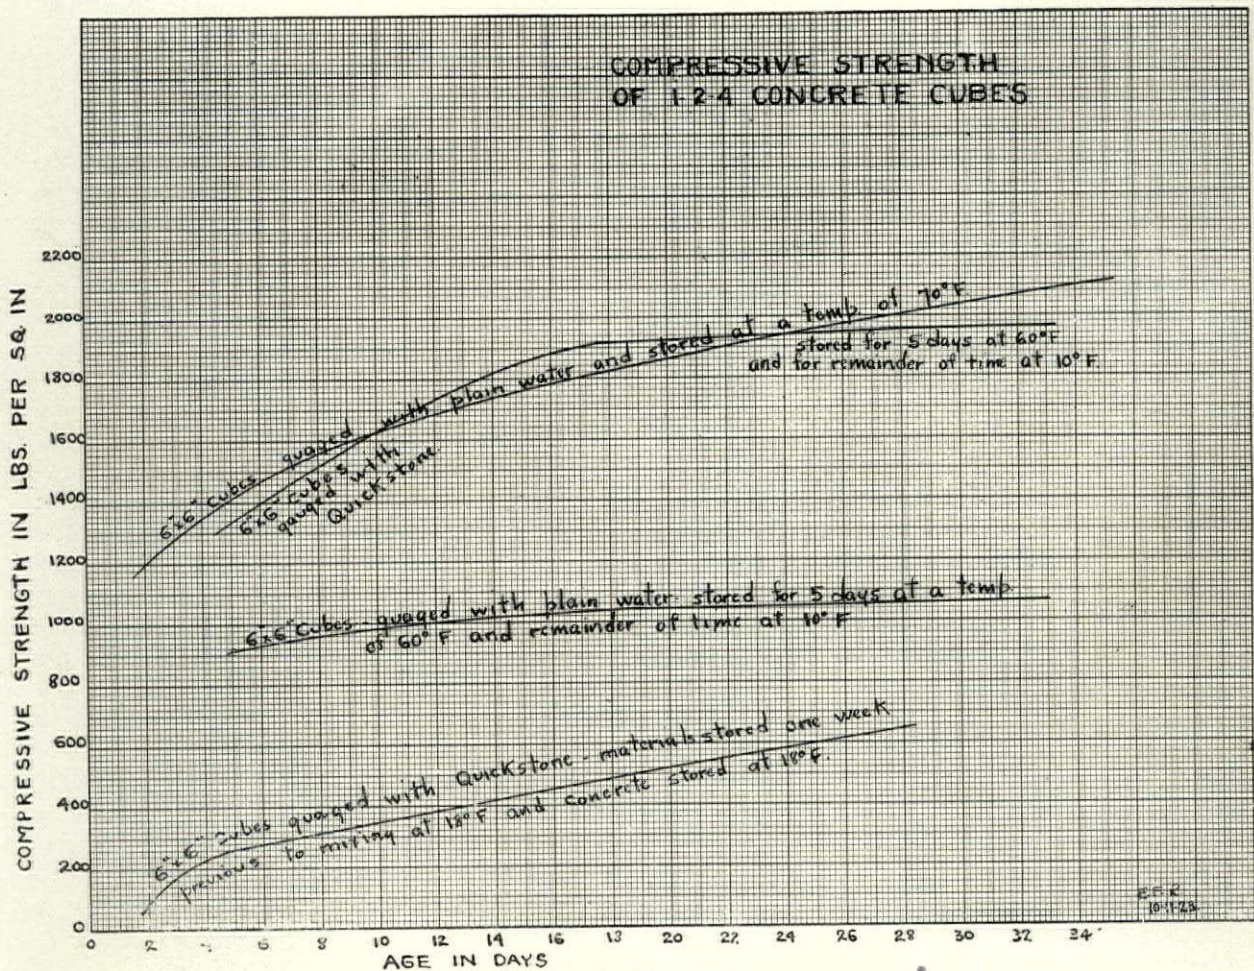 COMPRESSIVE STRENGTH
OF 1-2-4 CONCRETE CUBES
COMPRESSIVE STRENGTH IN LBS. PER SQ. IN
2200
2000
1800
1600
1400
1200
1000
800
600
400
200
0
6"x6" Cubes quaged with plain water and stored at a temp of 70°F
stored for 5 days at 60°F
and for remainder of time at 10°F.
6"x6" Cubes
gauged with
Quickstone.
6"x6" Cubes - quaged with plain water stored for 5 days at a temp
of 60°F and remainder of time at 10°F
6"x6" Cubes quaged with Quickstone - materials stored one week
previous to mixing at 18°F and concrete stored at 18°F.
0 2 6 8 10 12 14 16 20 22 24 26 28 30 32
AGE IN DAYS